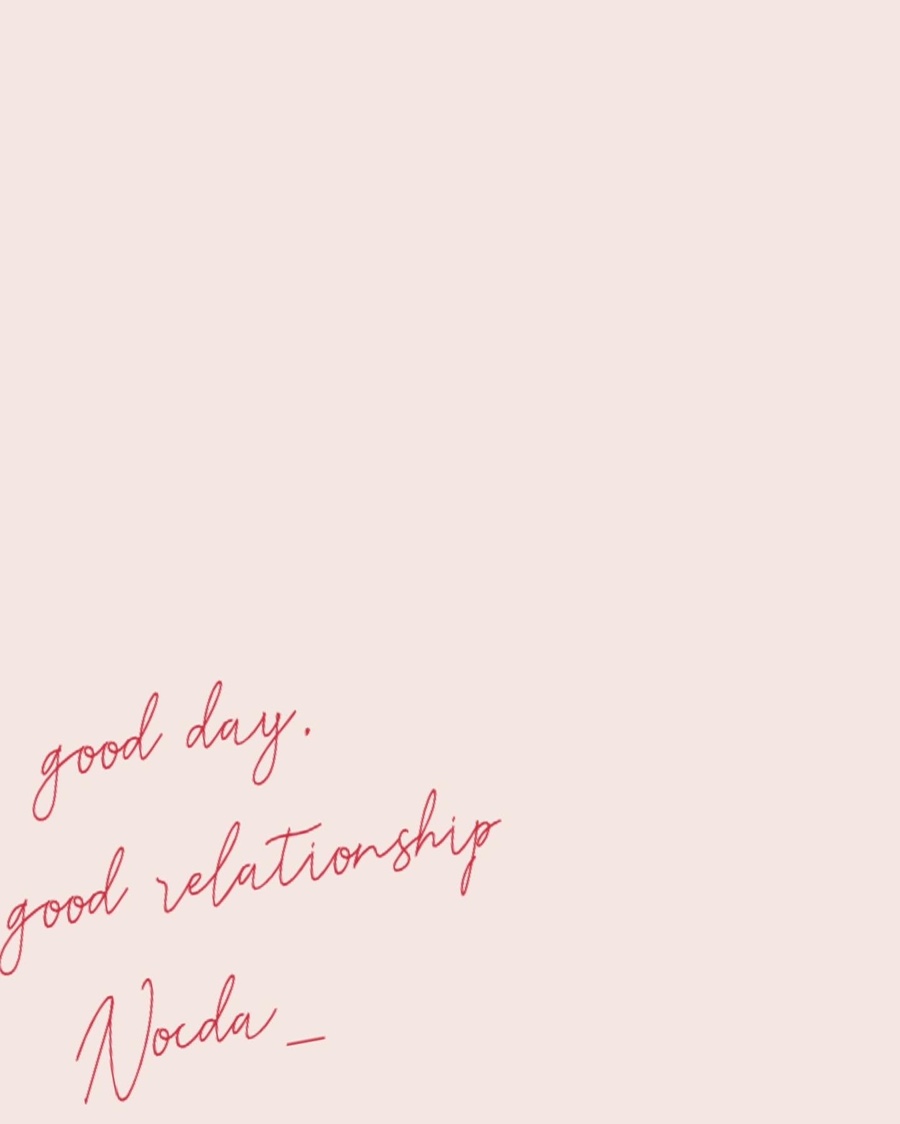 good day.
good relationship
Nocda _